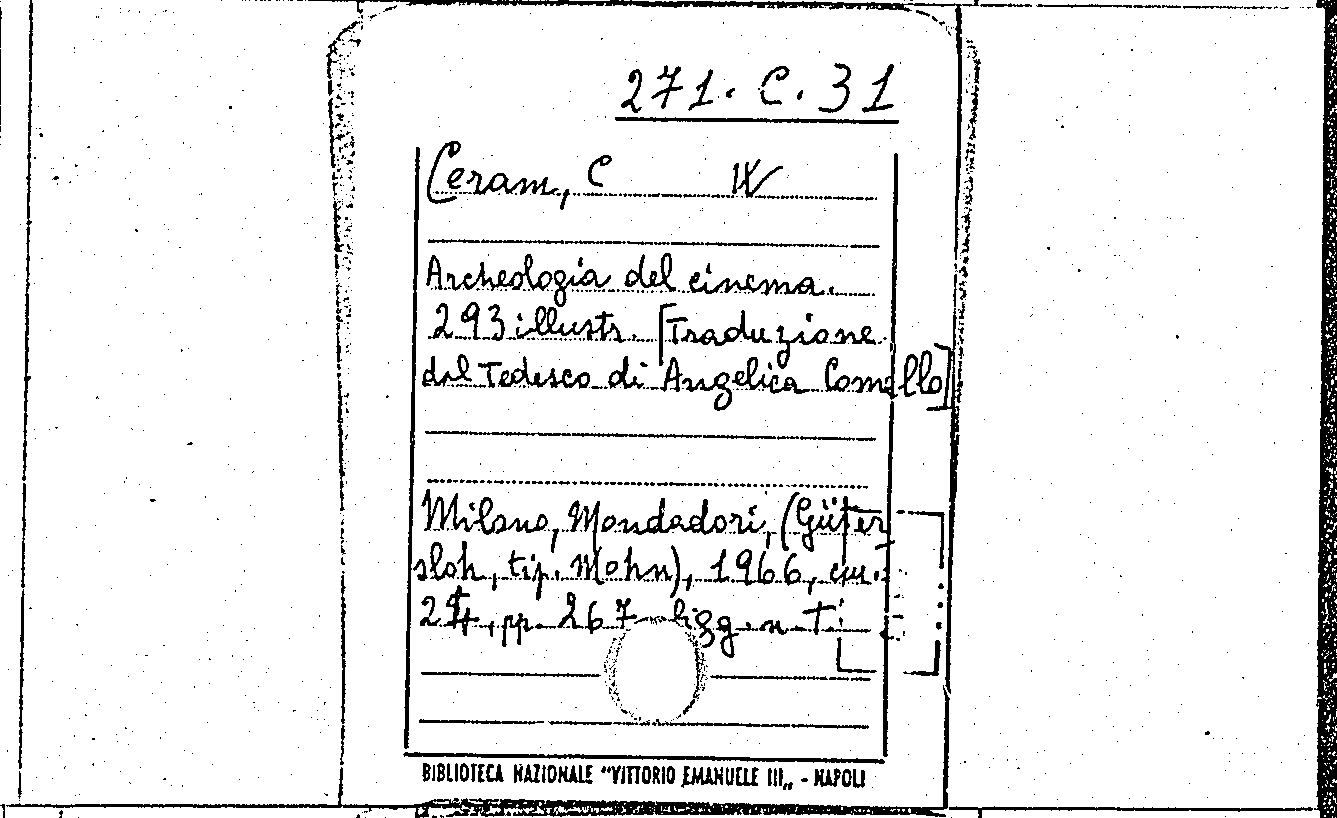 271. C. 31
Ceram, C W
Archeologia del cinema.
293 illustr. [Traduzione
dal Tedesco di Angelica Comello]
Milano, Mondadori, (Güter
sloh, tip. Mohn), 1966, cm.
24, pp. 267 figg. n. T.
BIBLIOTECA NAZIONALE "VITTORIO EMANUELE III„ - NAPOLI